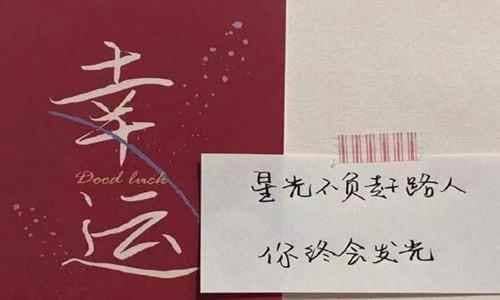 幸运
Dood luck
星光不负赶路人
你终会发光